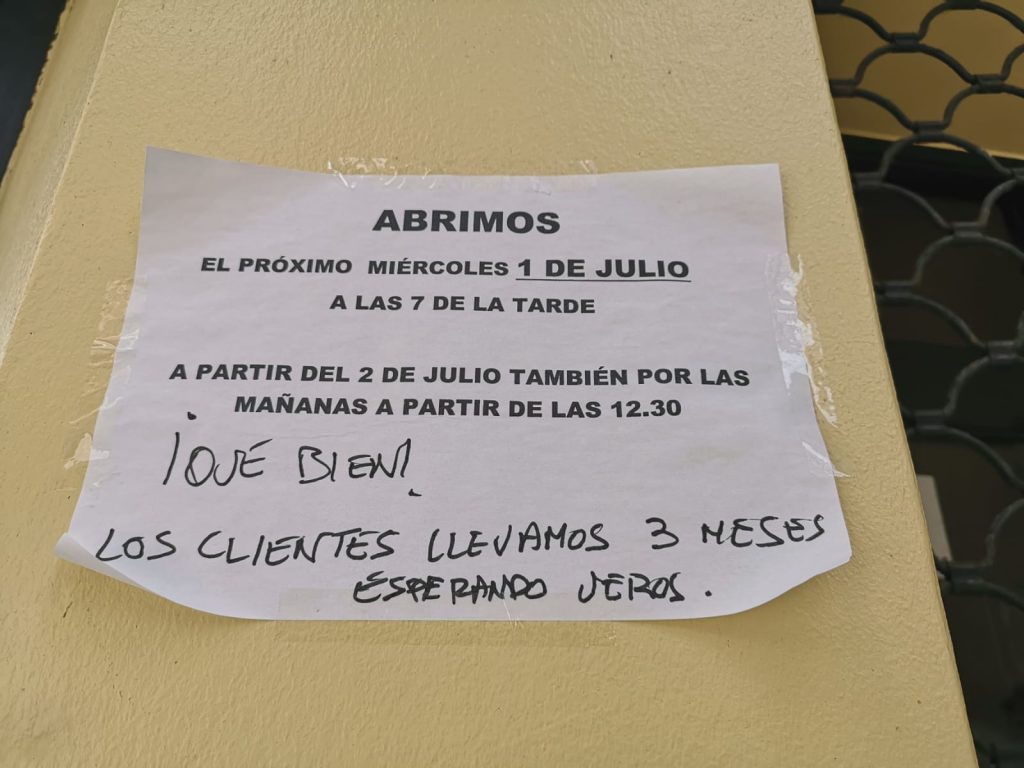 ABRIMOS
EL PRÓXIMO MIÉRCOLES 1 DE JULIO
A LAS 7 DE LA TARDE
A PARTIR DEL 2 DE JULIO TAMBIÉN POR LAS
MAÑANAS A PARTIR DE LAS 12.30
¡QUÉ BIEN!
LOS CLIENTES LLEVAMOS 3 MESES
ESPERANDO VEROS.